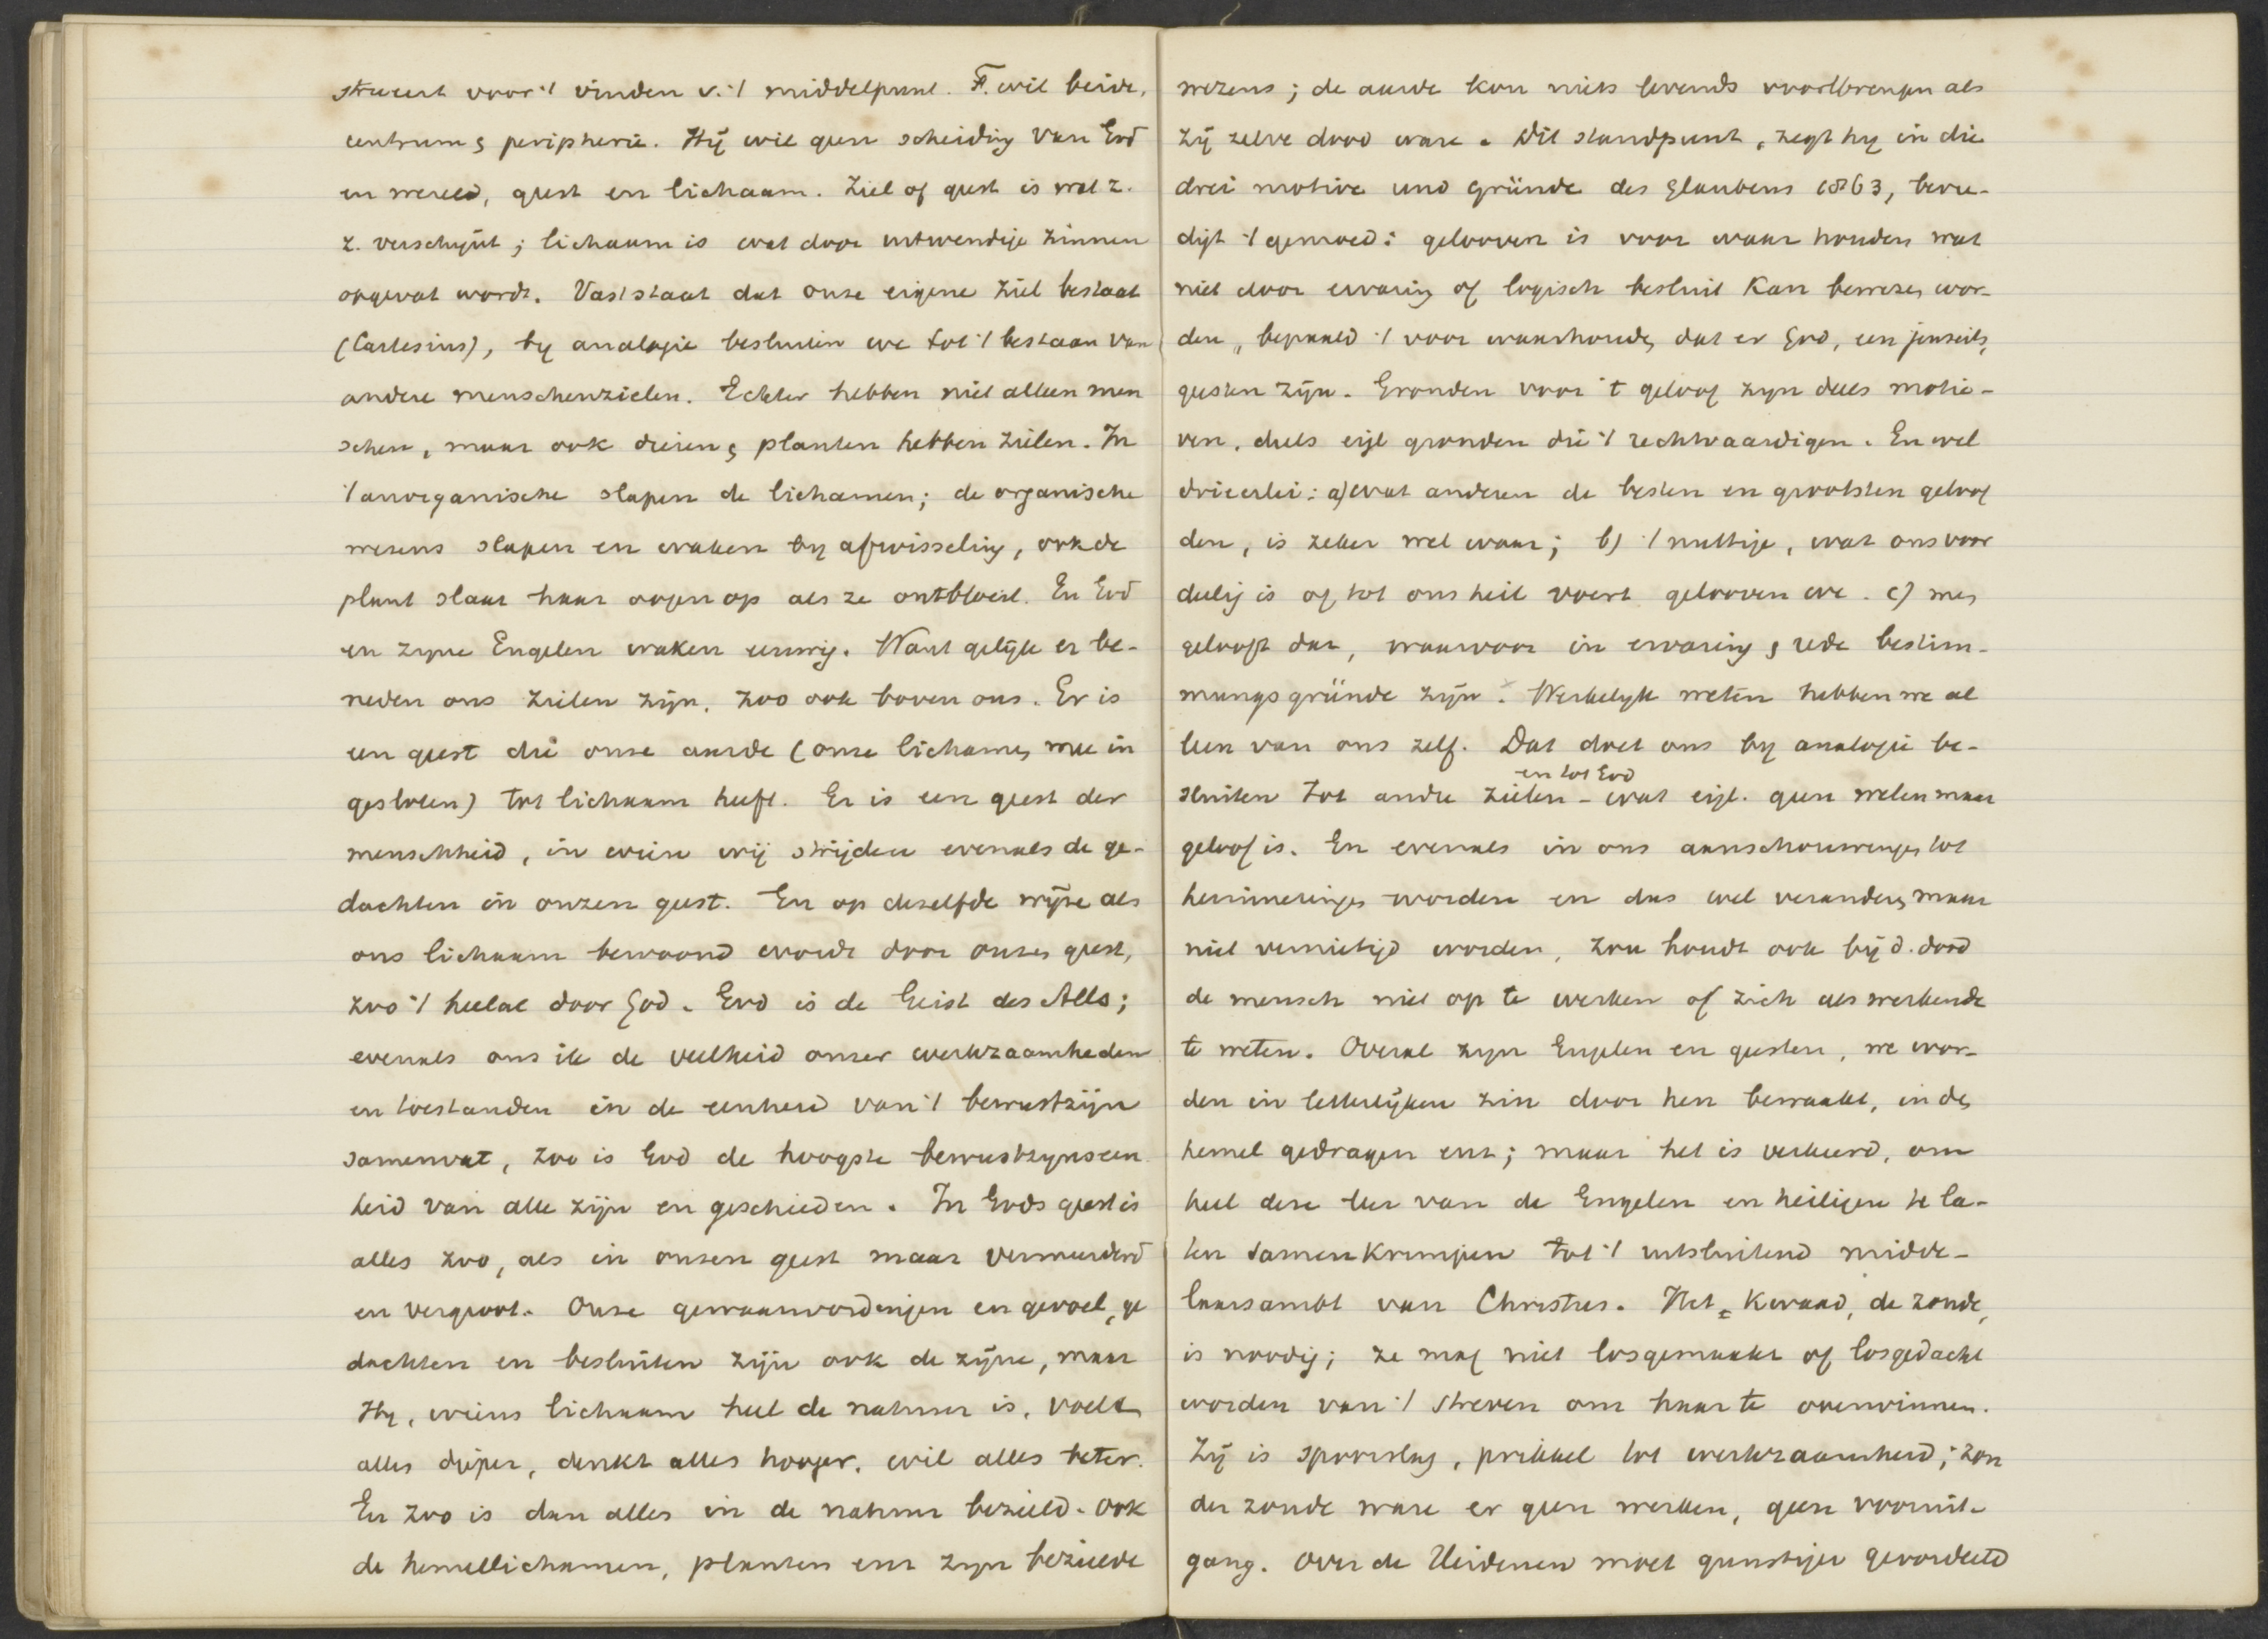 streeft voor 't vinden v. 't middelpunt. F. wil beide,
centrum & peripherie. Hij wil geen scheiding van God
en wereld, geest en lichaam. Ziel of geest is wat z.
z. verschijnt; lichaam is wat door uitwendige zinnen
opgevat wordt. Vast staat dat onze eigene ziel bestaat
(Cartesius), by analogie besluiten we tot 't bestaan van
andere menschenzielen. Echter hebben niet alleen men
schen, maar ook dieren & planten hebben zielen. In
't anorganische slapen de lichamen; de organische
wezens slapen en waken by afwisseling, ook de
plant slaat haar oogen op als ze ontbloeit. En God
en zyne Engelen waken eeuwig. Want gelijk er be-
neden ons zielen zijn, zoo ook boven ons. Er is
een geest die onze aarde (onze lichamen mee in
gesloten) tot lichaam heeft. Er is een geest der
menschheid, in wien wij strijden evenals de ge-
dachten in onzen geest. En op dezelfde wijze als
ons lichaam bewoond wordt door onzen geest,
zoo 't heelal door God. God is de Geist des Alls;
evenals ons ik de veelheid onzer werkzaamheden
en toestanden in de eenheid van 't bewustzijn
samenvat, zoo is God de hoogste bewustzynseen
heid van alle zijn en geschieden. In Gods geest is
alles zoo, als in onzen geest maar vermeerderd
en vergroot. Onze gewaarwordingen en gevoel, ge
dachten en besluiten zijn ook de zijne, maar
Hy, wiens lichaam heel de natuur is, voelt
alles dieper, denkt alles hooger, wil alles beter.
En zoo is dan alles in de natuur bezield. Ook
de hemellichamen, planten enz zyn bezielde
wezens; de aarde kon niets levends voortbrengen als
zij zelve dood ware. Dit standpunt, zegt hy in die
drei motive und Gründe des Glaubens 1863, bevre-
digt 't gemoed: gelooven is voor waar houden wat
niet door ervaring of logisch besluit kan bewezen wor-
den, bepaald 't voor waarhouden dat er God, een jenseits,
geesten zijn. Gronden voor 't geloof zyn deels motie-
ven, deels eigl gronden die 't rechtvaardigen. En wel
drieerlei: a) wat anderen de besten en grootsten geloof
den, is zeker wel waar; b) 't nuttige, wat ons voor
deelig is of tot ons heil voert gelooven we. c) men
gelooft dat, waarvoor in ervaring & rede bestim-
mungsgründe zijn. Werkelyk weten hebben we al
leen van ons zelf. Dat doet ons by analogie be-
en tot God
sluiten tot andre zielen - wat eigl. geen weten maar
geloof is. En evenals in ons aanschouwingen tot
herinneringen worden en dus wel veranderen maar
niet vernietigd worden, zoo houdt ook bij d. dood
de mensch niet op te werken of zich als werkende
te weten. Overal zyn Engelen en geesten, we wor-
den in letterlijken zin door hen bewaakt, in den
hemel gedragen enz; maar het is verkeerd, om
heel deze leer van de Engelen en heiligen te la-
ten samenkrimpen tot 't uitsluitend midde-
laarsambt van Christus. Het kwaad, de zonde,
is noodig; ze mag niet losgemaakt of losgedacht
worden van 't streven om haar te overwinnen.
Zij is spoorslag, prikkel tot werkzaamheid; zon
der zonde ware er geen werken, geen vooruit-
gang. Over de Heidenen moet gunstiger geoordeeld